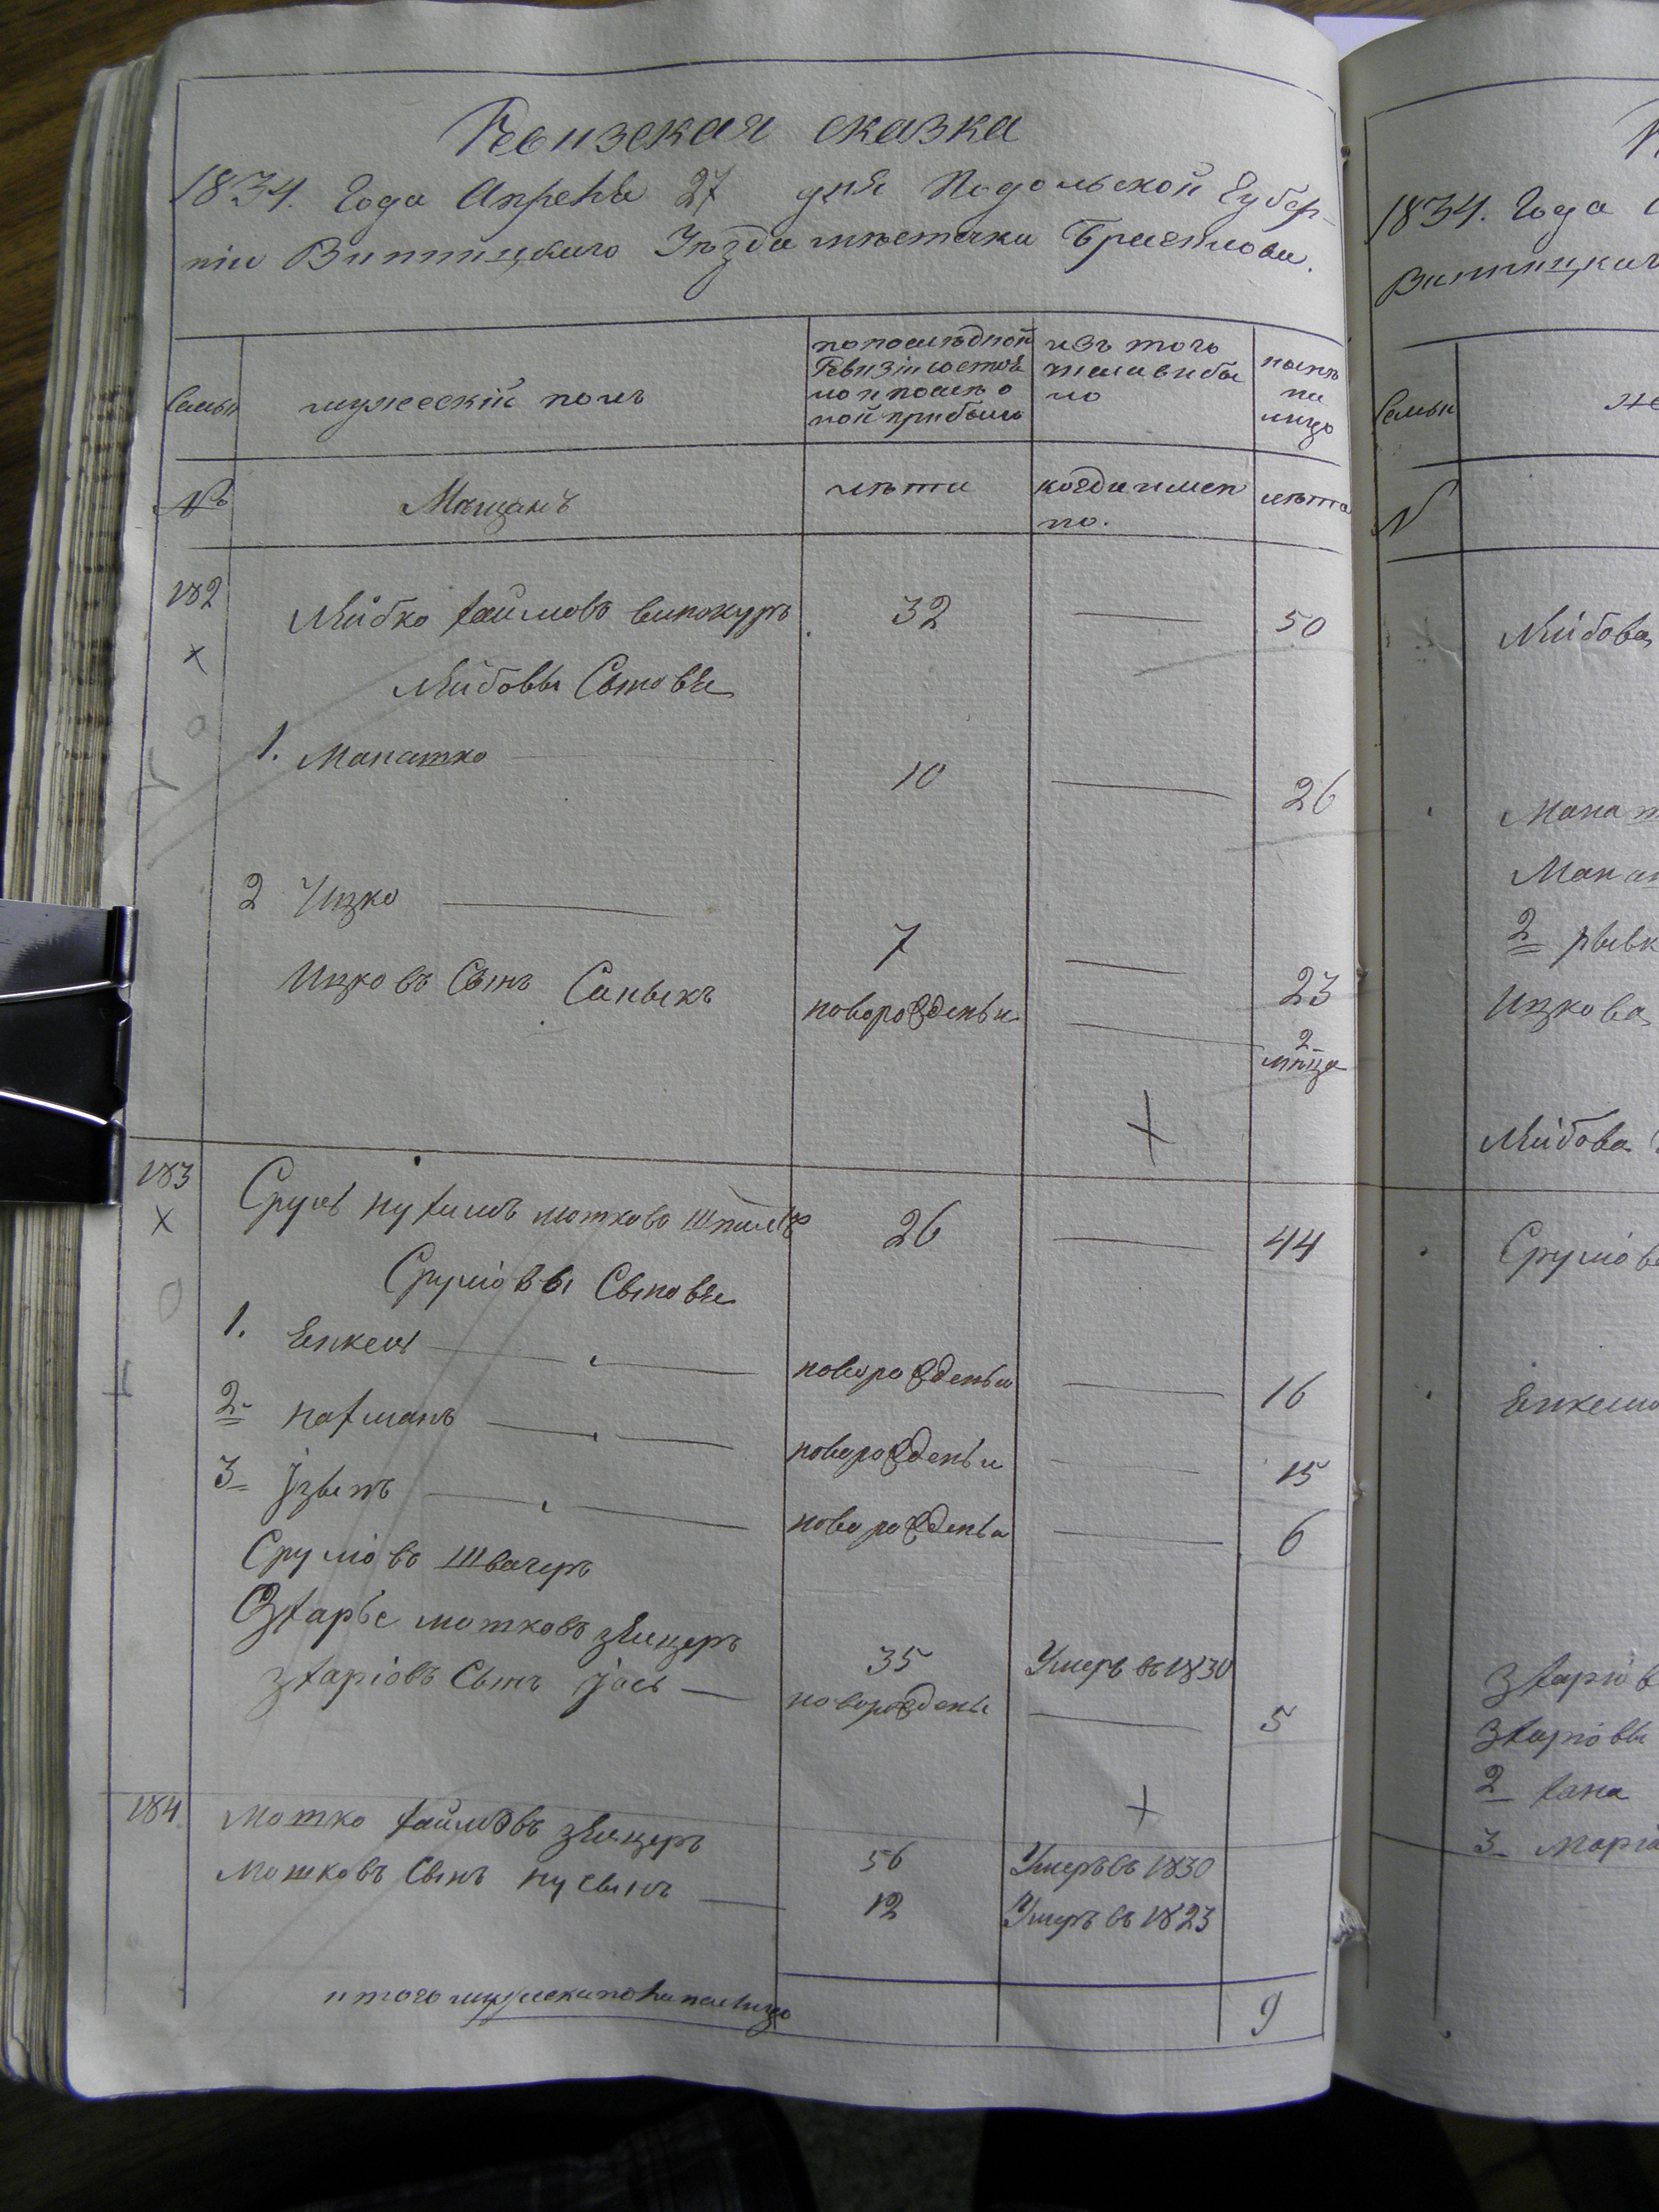 Ревизская сказка
1834. Года Апреля 27 дня Подольской Губер-
ніи Винницкаго Уѣзда мѣстечка Браилова.
Семьи
мужескій полъ
по последной Ревизіи состоя ло и после о ной прибыло
изъ того числа выбы ло
ныне на лицо
№
Мещанъ
лѣта
когда имен но.
лѣта
182 Лейбко Хаимовъ винокуръ 32 — 50
Лейбовы Сыновья
1. Манашко — 10 — 26
2 Ицко — 7 — 23
Ицковъ Сынъ новорожденъи — 2 мѣца
183 Сруль Нухимъ мошковъ 26 — 44
Срулiовы Сыновья
1. Енкель — новорожденъи — 16
2 нахманъ — новорожденъи — 15
3 — новорожденъи — 6
Срулiовъ Швагеръ
Зхарье мошковъ зейцеръ 35 Умеръ въ 1830
зхаріовъ Сынъ Jось — новорожденъ — 5
184 Мошко Хаимовъ зейцеръ 56 Умеръ въ 1830
Мошковъ Сынъ нусынъ — 12 Умеръ въ 1823
итого мужеска пола на лицо 9
1834. Года
Винницкаг
Семьи
N
Лейбова
Мана
2
Ицкова
Лейбова
Срулiов
Енкело
Зхаріов
Зхаріовы
2 Хана
3